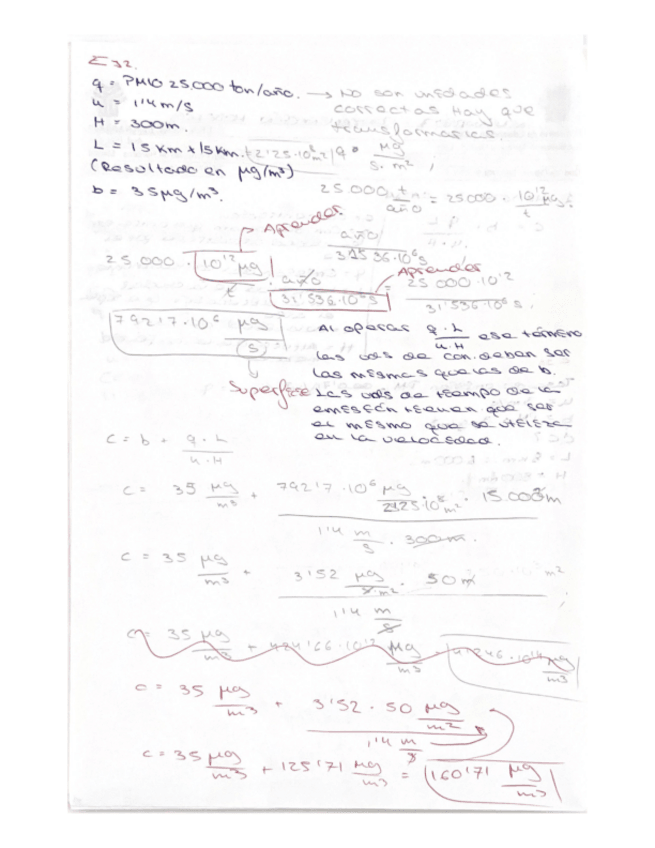 E 32.
q = PM10 25.000 ton/año. → No son unidades
u = 1'4 m/s correctas Hay que
H = 300m. transformarlas.
L = 15 Km x 15 Km. (2'25·10⁸ m²) q = μg / s·m²
(Resultado en μg/m³)
b = 35 μg/m³.
25.000 t/año = 25000 · 10¹² μg / t
→ Aprender
25.000 · 10¹² μg / t · año / 31'536·10⁶ s = 25 000·10¹² / 31'536·10⁶ s
año / 31536·10⁶ s
Aprender
79217·10⁶ μg / s
Al operar q·L / u·H ese término
las uds de con. deben ser
las mismas que las de b.
Superficie Las uds de tiempo de la
emisión tienen que ser
el mismo que se utiliza
en la velocidad.
c = b + q·L / u·H
c = 35 μg/m³ + 79217·10⁶ μg / 2'25·10⁸ m² · 15.000 m
1'4 m/s · 300 m.
c = 35 μg/m³ + 3'52 μg / s·m² · 50 m
1'4 m/s
c = 35 μg/m³ + μg/m³
c = 35 μg/m³ + 3'52 · 50 μg/m²
1'4 m/s
c = 35 μg/m³ + 125'71 μg/m³ = 160'71 μg/m³